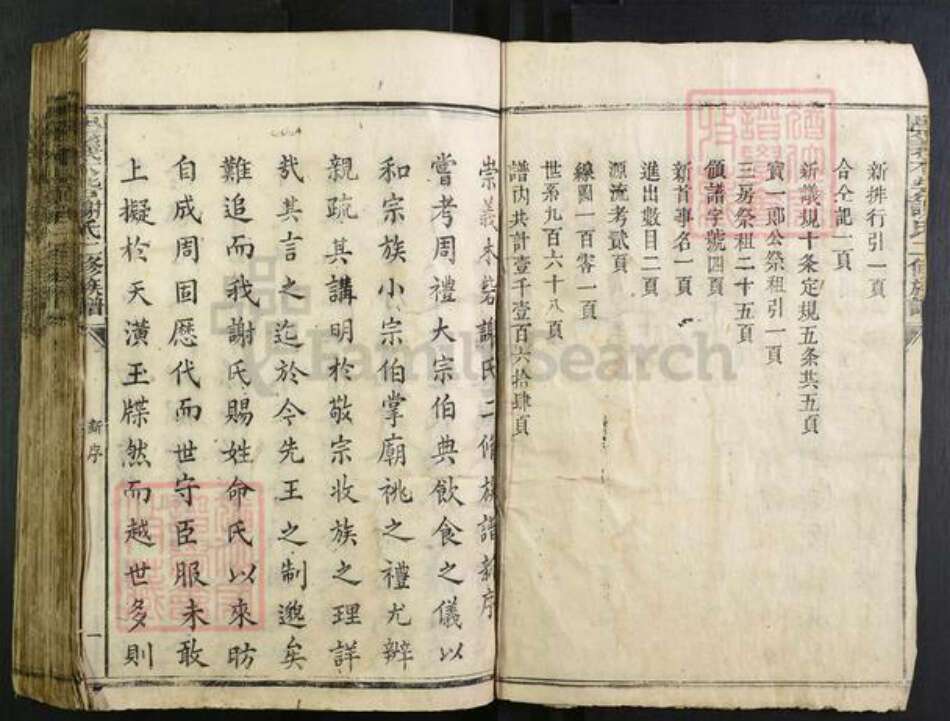 新排行引一頁
合仝記一頁
新議規十条定規五条共五頁
寳一郎公祭租引一頁
三房祭租二十五頁
領譜字號四頁
新首事名一頁
進出數目二頁
源流考貳頁
線圖一百零一頁
世系九百六十八頁
譜内共計壹千壹百六拾肆頁
崇義木砦謝氏二修族譜新序
嘗考周禮大宗伯典飲食之儀以
和宗族小宗伯掌廟祧之禮尤辨
親疏其講明於敬宗收族之理詳
哉其言之迄於今先王之制邈矣
難追而我謝氏賜姓命氏以來昉
自成周固歷代而世守臣服未敢
上擬於天潢玉牒然而越世多則
新序
一
FamilySearch